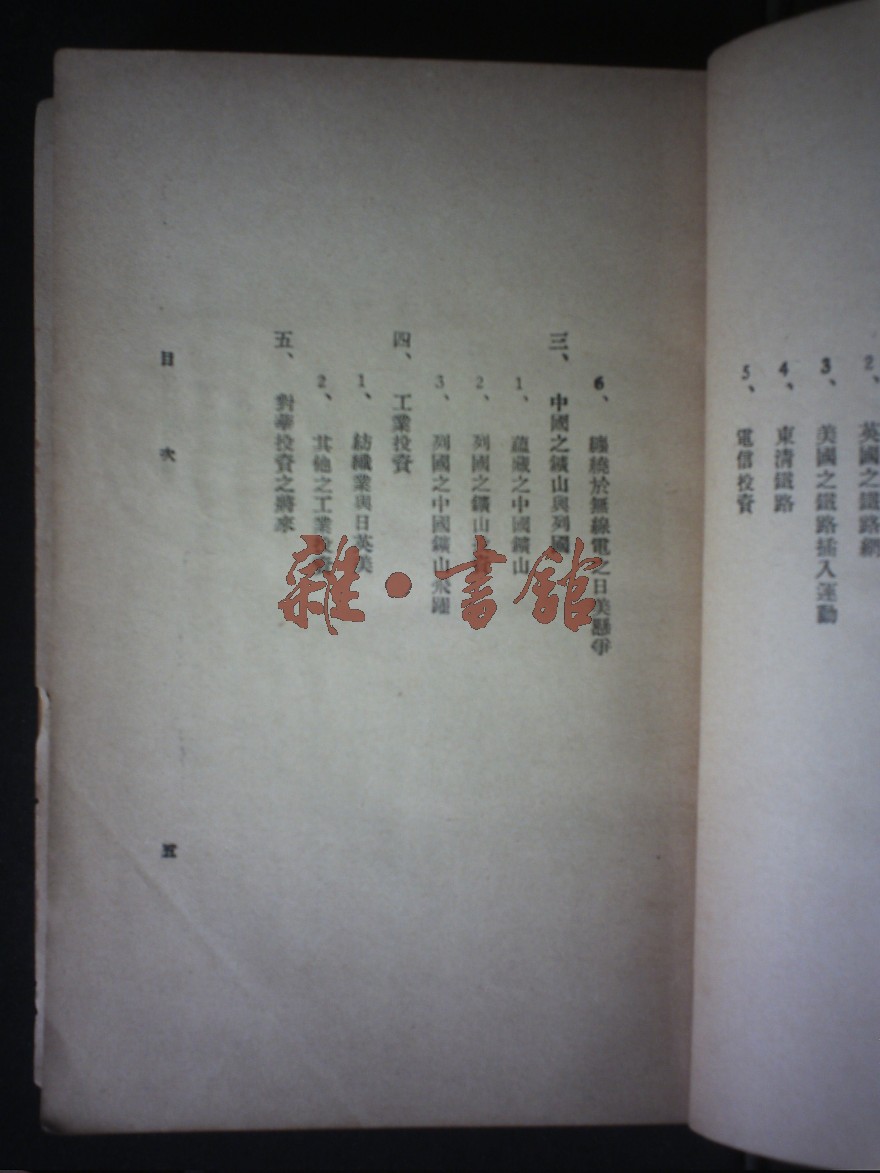 2、 英國之鐵路網
3、 美國之鐵路插入運動
4、 東清鐵路
5、 電信投資
6、 纏繞於無線電之日美懸爭
三、 中國之鑛山與列國
1、 蘊藏之中國鑛山
2、 列國之鑛山投資
3、 列國之中國鑛山飛躍
四、 工業投資
1、 紡織業與日英美
2、 其他之工業投資
五、 對華投資之將來
目 次
五
雜·書館